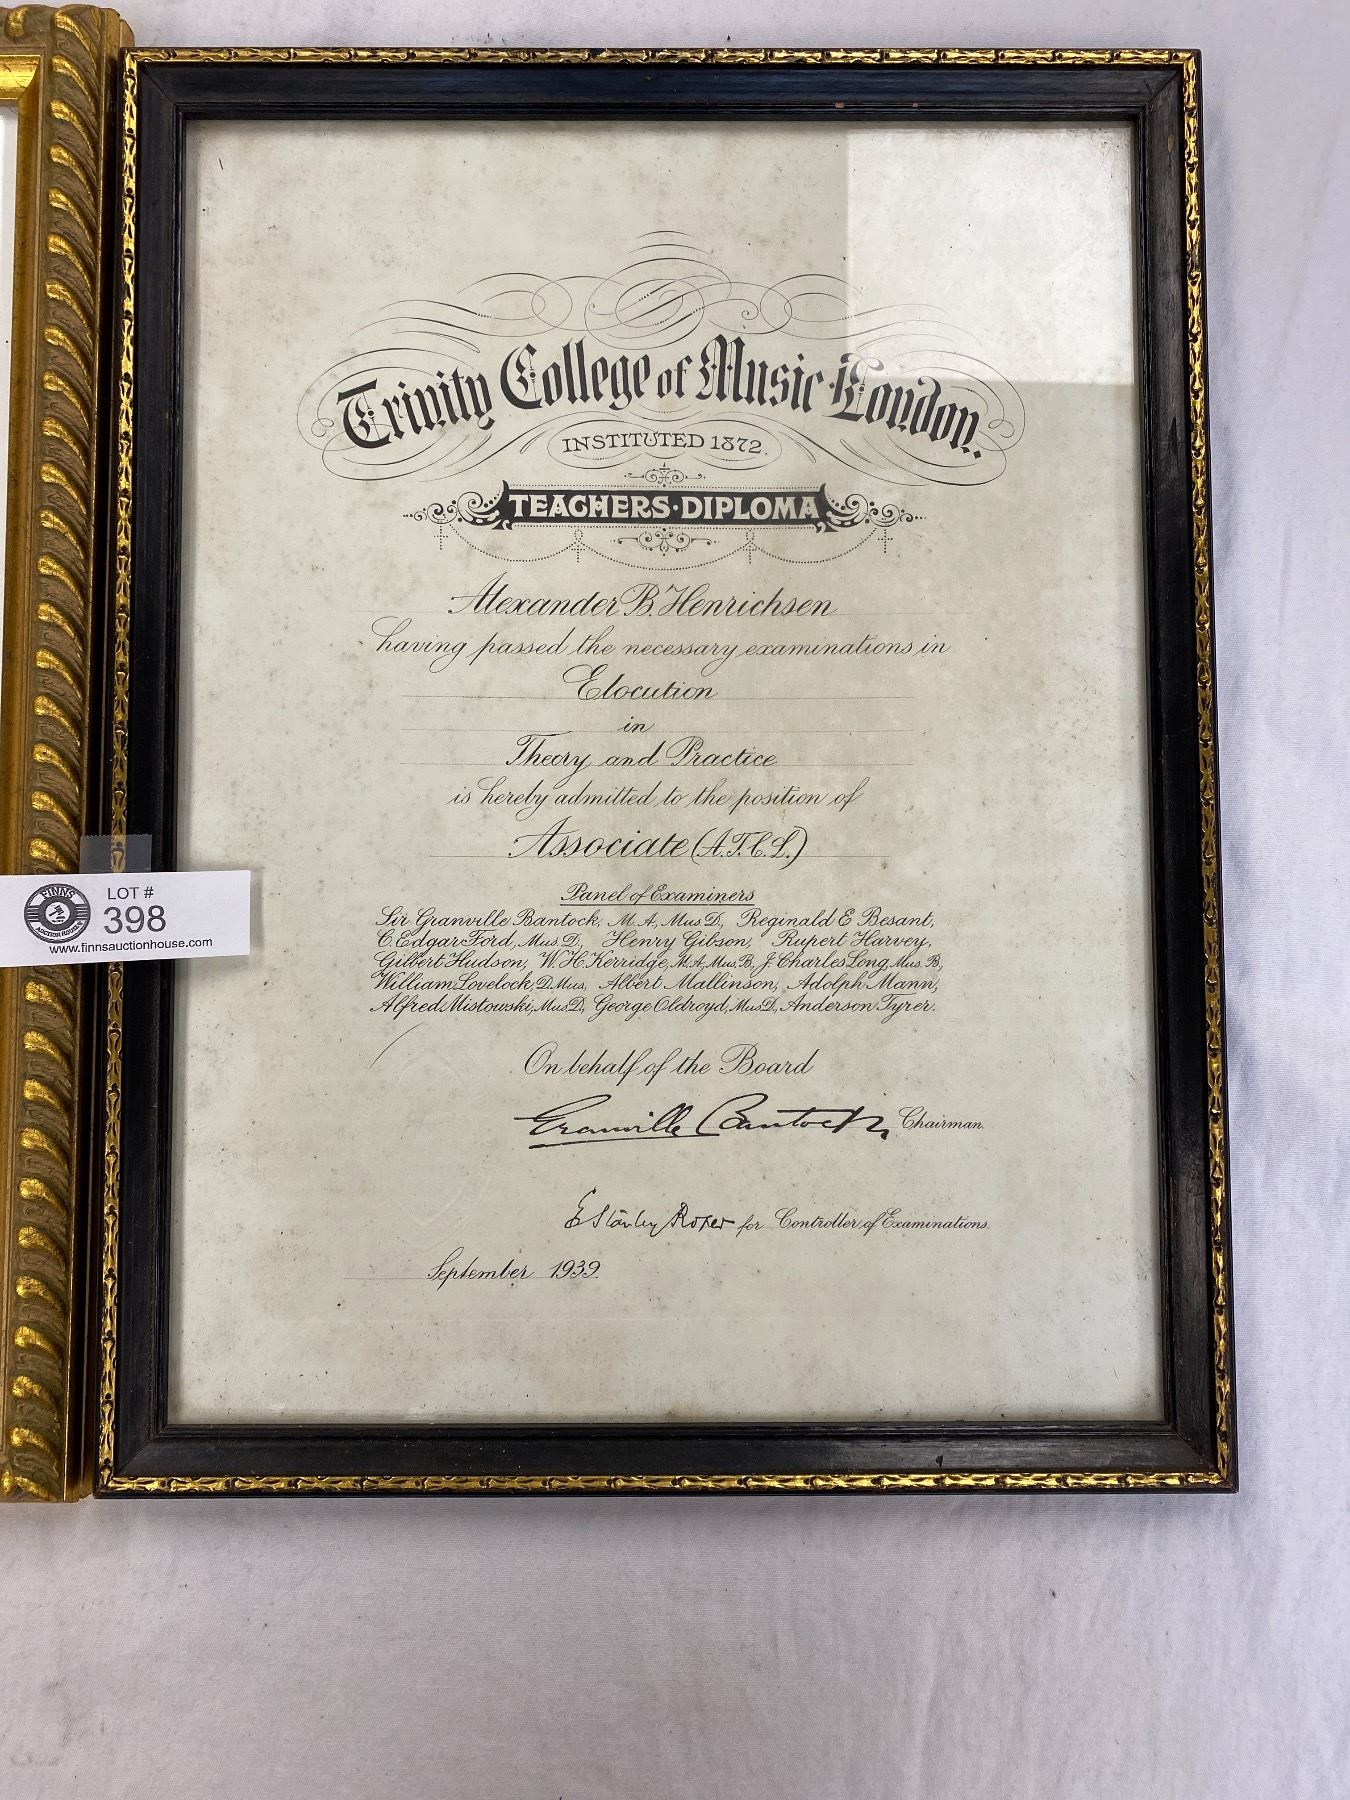 Trinity College of Music · London.
INSTITUTED 1872.
TEACHERS·DIPLOMA
Alexander B. Henrichsen
having passed the necessary examinations in
Elocution
in
Theory and Practice
is hereby admitted to the position of
Associate (A.T.C.L.)
Panel of Examiners
Sir Granville Bantock, M.A., Mus.D., Reginald E. Besant,
C. Edgar Ford, Mus.D., Henry Gibson, Rupert Harvey,
Gilbert Hudson, W.H. Kerridge, M.A., Mus.B., J. Charles Long, Mus.B.,
William Lovelock, D.Mus., Albert Mallinson, Adolph Mann,
Alfred Mistowski, Mus.D., George Oldroyd, Mus.D., Anderson Tyrer.
On behalf of the Board
Granville Bantock, Chairman.
E Stanley Roper for Controller of Examinations.
September 1939.
FINNS
AUCTION HOUSE
LOT #
398
www.finnsauctionhouse.com